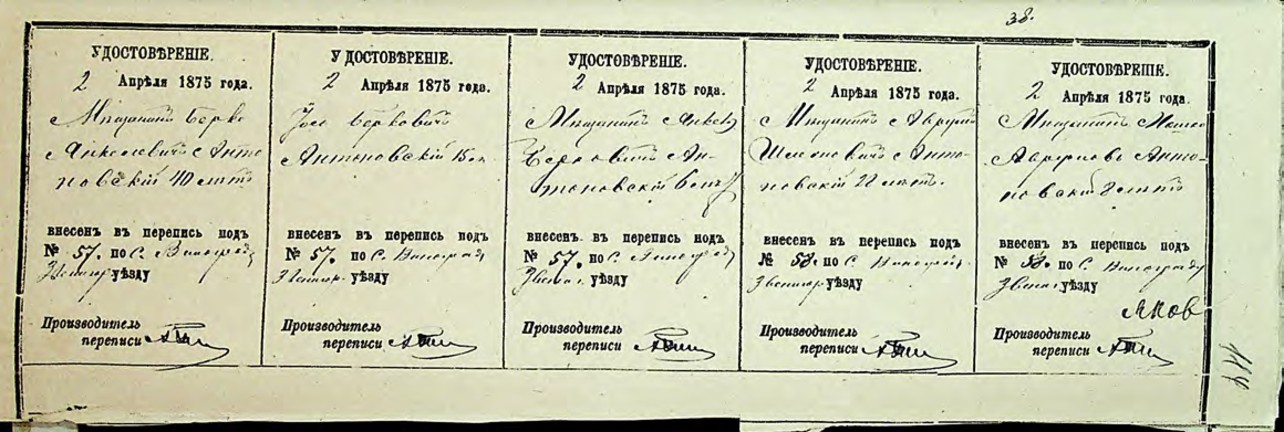 38.
УДОСТОВѢРЕНІЕ.
2 Апрѣля 1875 года.
Мѣщанинъ Берко
Анкелевичъ Анто
новскій 40 лѣтъ
внесенъ въ перепись подъ
№ 57. по С. Виноград
Звенигор. уѣзду
Производитель
переписи
УДОСТОВѢРЕНІЕ.
2 Апрѣля 1875 года.
Берковичъ
Антоновскій
внесенъ въ перепись подъ
№ 57. по С. Виноград
Звенигор. уѣзду
Производитель
переписи
УДОСТОВѢРЕНІЕ.
2 Апрѣля 1875 года.
Мѣщанинъ
Берковичъ Ан-
тоновскій
внесенъ въ перепись подъ
№ 57. по С. Виноград
уѣзду
Производитель
переписи
УДОСТОВѢРЕНІЕ.
2 Апрѣля 1875 года.
Мѣщанинъ Аврумъ
Шмеоновичъ Анто-
новскій 22 лѣтъ.
внесенъ въ перепись подъ
№ 58. по С. Виноград
Звенигор. уѣзду
Производитель
переписи
УДОСТОВѢРЕНІЕ.
2 Апрѣля 1875 года.
Мѣщанинъ
Аврумовъ Анто-
новскій 2 лѣтъ
внесенъ въ перепись подъ
№ 58. по С. Винограду
уѣзду
Яков
Производитель
переписи
114